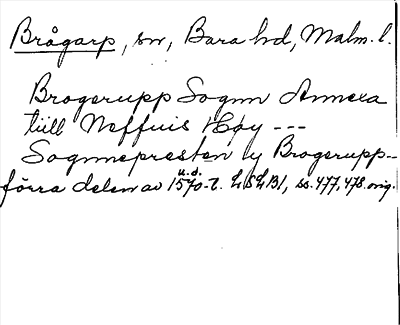 Brågarp, sn, Bara hd, Malm. l.
Brogerupp Sognn Annexa
tiill Neffuis Høy ---
Sognnepresten y Brogerupp--
u. d.
förra delen av 1570-t. LSLB1, ss. 477, 478. orig.